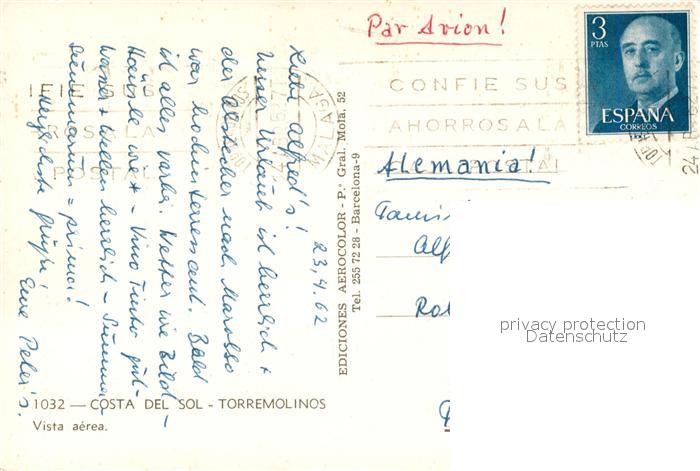 Par Avion!
3
PTAS
ESPAÑA
CORREOS
CONFIE SUS
AHORROS A LA
MALAGA
Alemania!
Famil
Alf
Rot
privacy protection /
Datenschutz
EDICIONES AEROCOLOR - P.º Gral. Mola, 52
Tel. 255 72 28 - Barcelona-9
23.4.62
Liebe Alfred's!
Unser Urlaub ist herrlich +
der Abstecher nach Marokko
war hochinteressant. Bald
ist alles vorbei. Wetter wie Bild -
Häusle wie + - Vino Tinto gut -
Wasser + Wellen herrlich - Summa
Summarum = prima!
Herzlichste Grüße!
Eure Peter's.
1032 — COSTA DEL SOL - TORREMOLINOS
Vista aérea.